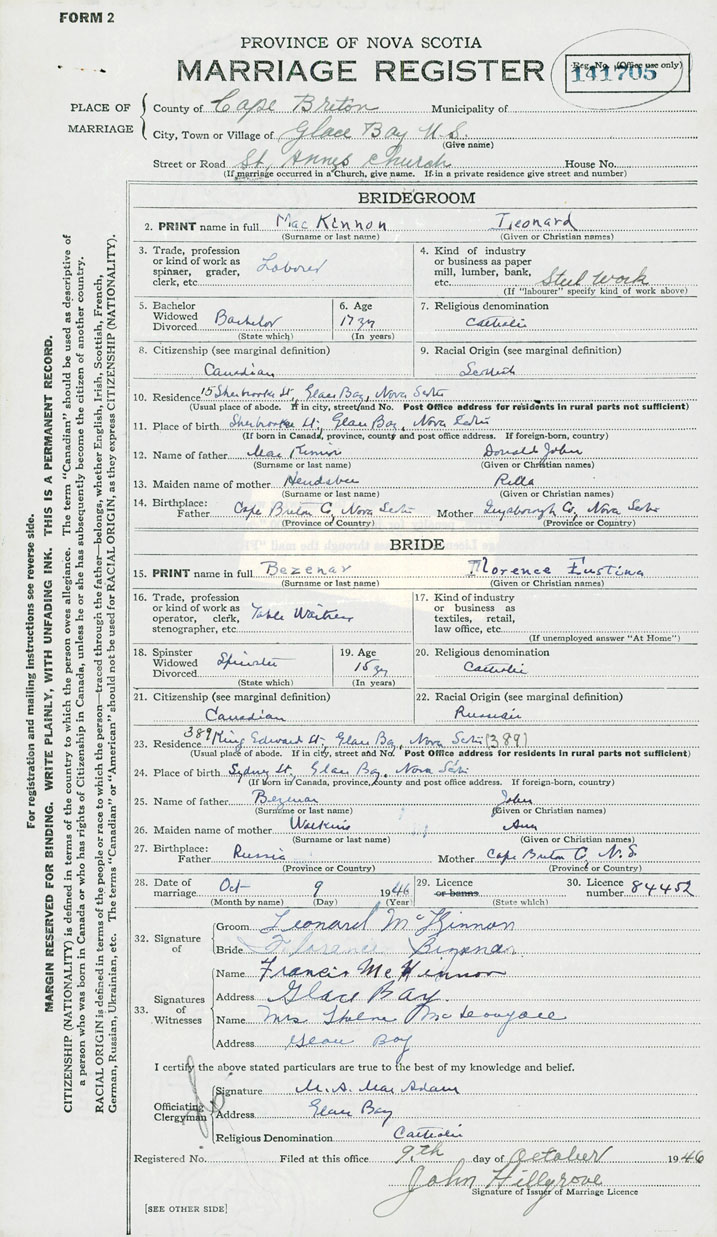 FORM 2
PROVINCE OF NOVA SCOTIA
MARRIAGE REGISTER
Reg. No. (Office use only)
141705
PLACE OF MARRIAGE
County of Cape Breton Municipality of
City, Town or Village of Glace Bay N.S.
(Give name)
Street or Road St. Annes Church House No.
(If marriage occurred in a Church, give name. If in a private residence give street and number)
BRIDEGROOM
2. PRINT name in full Mac Kinnon Leonard
(Surname or last name) (Given or Christian names)
3. Trade, profession or kind of work as spinner, grader, clerk, etc. Laborer
4. Kind of industry or business as paper mill, lumber, bank, etc. Steel Work
(If "labourer" specify kind of work above)
5. Bachelor Widowed Divorced Bachelor
(State which)
6. Age 17 yr
(In years)
7. Religious denomination
Catholic
8. Citizenship (see marginal definition)
Canadian
9. Racial Origin (see marginal definition)
Scottish
10. Residence 15 Sherbrooke St, Glace Bay, Nova Scotia
(Usual place of abode. If in city, street and No. Post Office address for residents in rural parts not sufficient)
11. Place of birth Sherbrooke St, Glace Bay, Nova Scotia
(If born in Canada, province, county and post office address. If foreign-born, country)
12. Name of father Mac Kinnon Donald John
(Surname or last name) (Given or Christian names)
13. Maiden name of mother Rella
(Surname or last name) (Given or Christian names)
14. Birthplace: Father Cape Breton C, Nova Scotia Mother Guysborough Co, Nova Scotia
(Province or Country) (Province or Country)
BRIDE
15. PRINT name in full Bezenar Florence Eustina
(Surname or last name) (Given or Christian names)
16. Trade, profession or kind of work as operator, clerk, stenographer, etc. Table Waitress
17. Kind of industry or business as textiles, retail, law office, etc.
(If unemployed answer "At Home")
18. Spinster Widowed Divorced Spinster
(State which)
19. Age 15 yr
(In years)
20. Religious denomination
Catholic
21. Citizenship (see marginal definition)
Canadian
22. Racial Origin (see marginal definition)
Russian
23. Residence 389 King Edward St, Glace Bay, Nova Scotia (389)
(Usual place of abode. If in city, street and No. Post Office address for residents in rural parts not sufficient)
24. Place of birth Sydney St, Glace Bay, Nova Scotia
(If born in Canada, province, county and post office address. If foreign-born, country)
25. Name of father Bezenar John
(Surname or last name) (Given or Christian names)
26. Maiden name of mother Watkins Ann
(Surname or last name) (Given or Christian names)
27. Birthplace: Father Russia Mother Cape Breton C, N.S.
(Province or Country) (Province or Country)
28. Date of marriage Oct 9 1946
(Month by name) (Day) (Year)
29. Licence or banns
(State which)
30. Licence number 84452
32. Signature of
Groom Leonard McKinnon
Bride Florence
33. Signatures of Witnesses
Name Francis McKinnon
Address Glace Bay
Name Mrs
Address Glace Bay
I certify the above stated particulars are true to the best of my knowledge and belief.
Officiating Clergyman
Signature M. A. Mac Adam
Address Glace Bay
Religious Denomination Catholic
Registered No. Filed at this office 9th day of October 1946
John Hillgrove
Signature of Issuer of Marriage Licence
[SEE OTHER SIDE]
For registration and mailing instructions see reverse side.
MARGIN RESERVED FOR BINDING. WRITE PLAINLY, WITH UNFADING INK. THIS IS A PERMANENT RECORD.
CITIZENSHIP (NATIONALITY) is defined in terms of the country to which the person owes allegiance. The term "Canadian" should be used as descriptive of
a person who was born in Canada or who has rights of Citizenship in Canada, unless he or she has subsequently become the citizen of another country.
RACIAL ORIGIN is defined in terms of the people or race to which the person—traced through the father—belongs, whether English, Irish, Scottish, French,
German, Russian, Ukrainian, etc. The terms "Canadian" or "American" should not be used for RACIAL ORIGIN, as they express CITIZENSHIP (NATIONALITY).